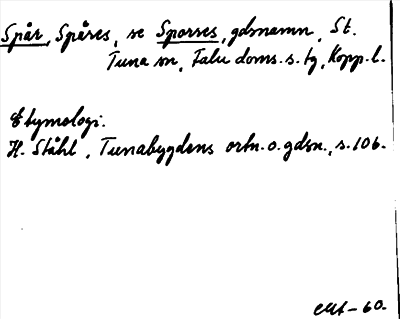 Spår, Spåres, se Sporres, gdsnamn, St.
Tuna sn, Falu doms. s. tg, Kopp. l.
Etymologi.
H. Ståhl, Tunabygdens ortn. o. gdsn., s. 106.
-60.